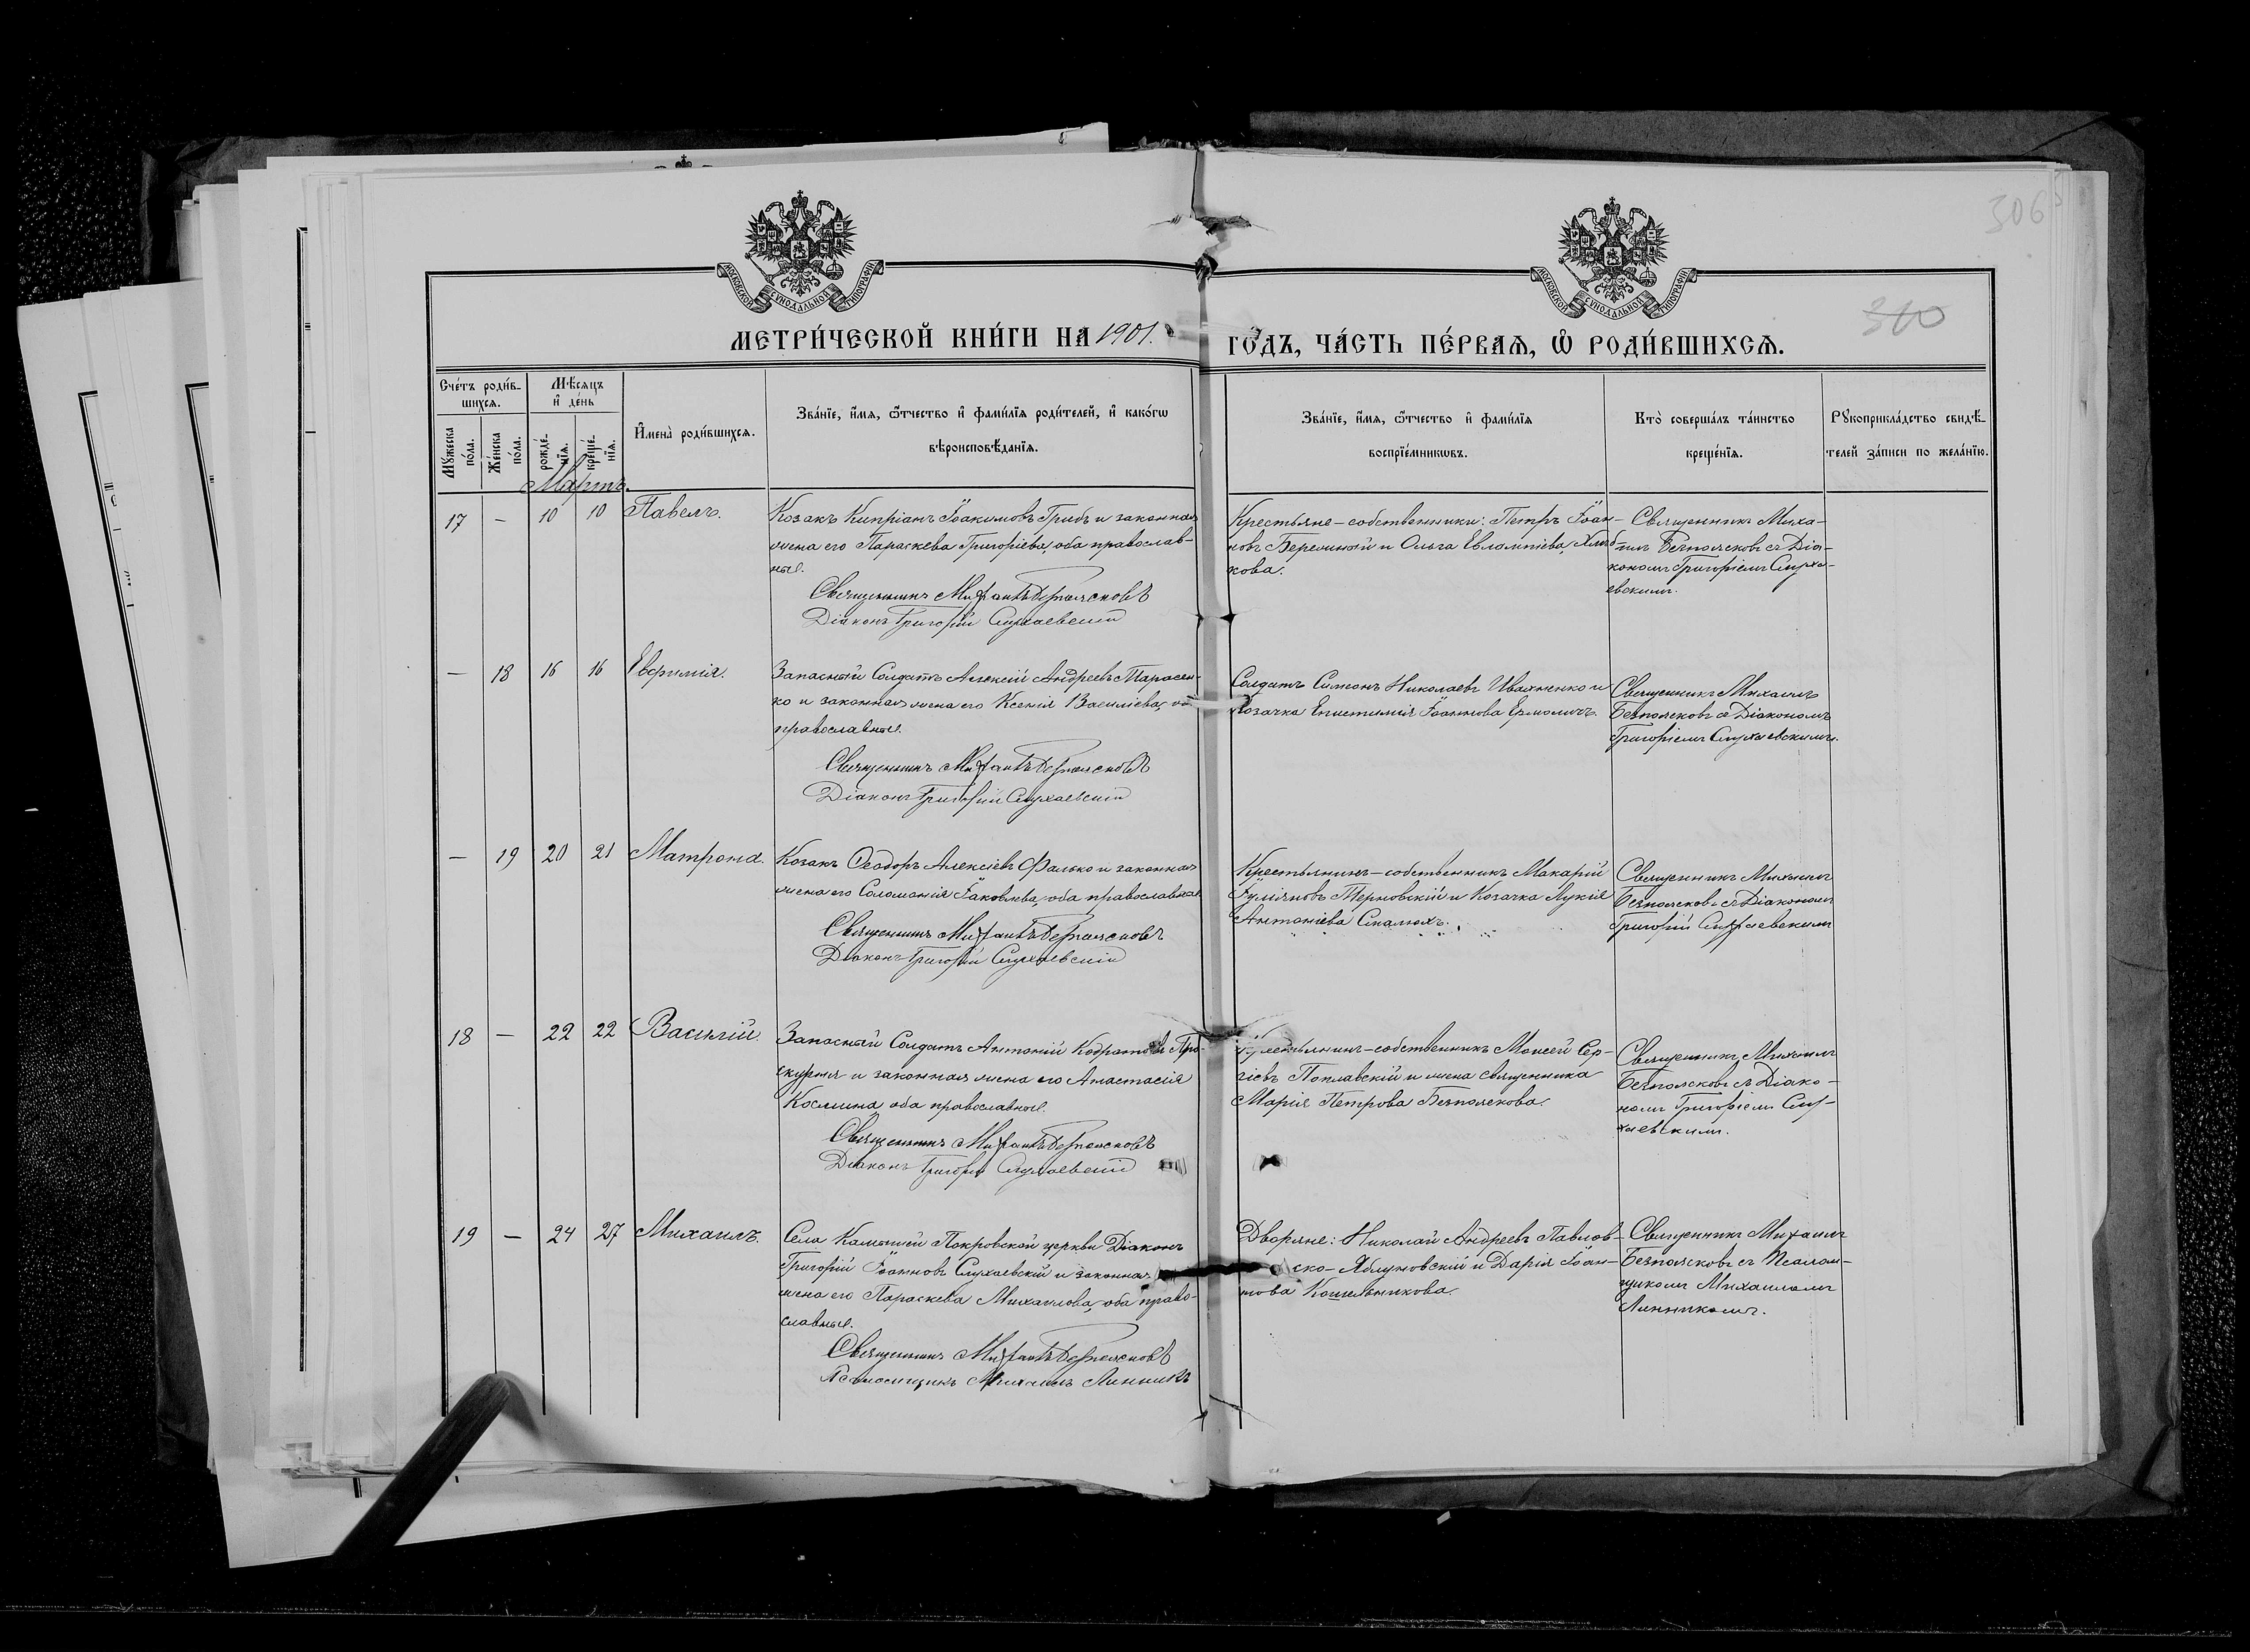 3065
310
МОСКОВСКОЙ СУНОДАЛЬНОЙ ТИПОГРАФІИ
МОСКОВСКОЙ СУНОДАЛЬНОЙ ТИПОГРАФІИ
МЕТРИ́ЧЕСКОЙ КНИ́ГИ НА 1901.
ГО́ДЪ, ЧА́СТЬ ПЕ́РВАѦ, Ѡ҆ РОДИ́ВШИХСѦ.
Сче́тъ роди́в-
шихсѧ.
Мѣ́сѧцъ
и҆ де́нь
Мꙋ́жеска
по́ла.
Же́нска
по́ла.
рожде́-
нїѧ.
креще́-
нїѧ.
И҆мена̀ роди́вшихсѧ.
Зва́нїе, и҆́мѧ, ѻ҆́тчество и҆ фами́лїѧ роди́телей, и҆ како́гѡ
вѣроисповѣ́данїѧ.
Зва́нїе, и҆́мѧ, ѻ҆́тчество и҆ фами́лїѧ
воспрїе́мникѡвъ.
Кто̀ соверша́лъ та́инство
креще́нїѧ.
Рꙋкоприкла́дство свидѣ́-
телей за́писи по жела́нїю.
Мартъ.
17 — 10 10 Павелъ.
Козакъ Кипріанъ Іоакимовъ Грибъ и законная
жена его Параскева Григоріева, оба православ-
ные.
Священникъ Михаилъ Безпоясковъ
Діаконъ Григорій Слухаевскій
Крестьяне-собственники: Петръ Іоан-
новъ Бережной и Ольга Евлампіева
кова.
Священникъ Миха-
илъ Безпоясковъ съ Діа-
кономъ Григоріемъ Слуха-
евскимъ.
— 18 16 16 Евфимія.
Запасный Солдатъ Алексій Андреевъ Тарасен-
ко и законная жена его Ксенія Василіева,
православные.
Священникъ Михаилъ Безпоясковъ
Діаконъ Григорій Слухаевскій
Солдатъ Симеонъ Николаевъ Ивахненко и
Козачка Епистимія Іоаннова Ермоличъ.
Священникъ Михаилъ
Безпоясковъ съ Діакономъ
Григоріемъ Слухаевскимъ.
— 19 20 21 Матрона.
Козакъ Ѳеодоръ Алексіевъ Фалько и законная
жена его Соломонія Іаковлева, оба православные
Священникъ Михаилъ Безпоясковъ
Діаконъ Григорій Слухаевскій
Крестьянинъ-собственникъ Макарій
Іуліановъ Терновскій и Козачка Лукія
Антоніева Скалюхъ.
Священникъ Михаилъ
Безпоясковъ съ Діакономъ
Григорій Слухаевскимъ
18 — 22 22 Василій.
Запасный Солдатъ Антоній Кодратовъ Про-
скурня и законная жена его Анастасія
Космина, оба православные.
Священникъ Михаилъ Безпоясковъ
Діаконъ Григорій Слухаевскій
Крестьянинъ-собственникъ Моисей Сер-
гіевъ Поплавскій и жена священника
Марія Петрова Безпояскова.
Священникъ Михаилъ
Безпоясковъ съ Діако-
номъ Григоріемъ Слу-
хаевскимъ.
19 — 24 27 Михаилъ.
Села Камышей Покровской церкви Діаконъ
Григорій Іоанновъ Слухаевскій и законная
жена его Параскева Михаилова, оба право-
славные.
Священникъ Михаилъ Безпоясковъ
Псаломщикъ Михаилъ Линникъ
Дворяне: Николай Андреевъ Павлов-
ско-Яблуновскій и Дарія Іоан-
нова Кошельникова.
Священникъ Михаилъ
Безпоясковъ съ Псалом-
щикомъ Михаиломъ
Линникомъ.